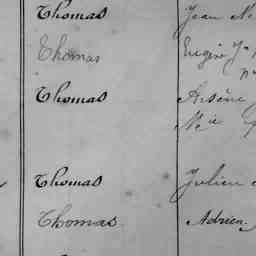 Thomas Jean
Thomas Eugène
Thomas Arsène
Thomas Julien
Thomas Adrien